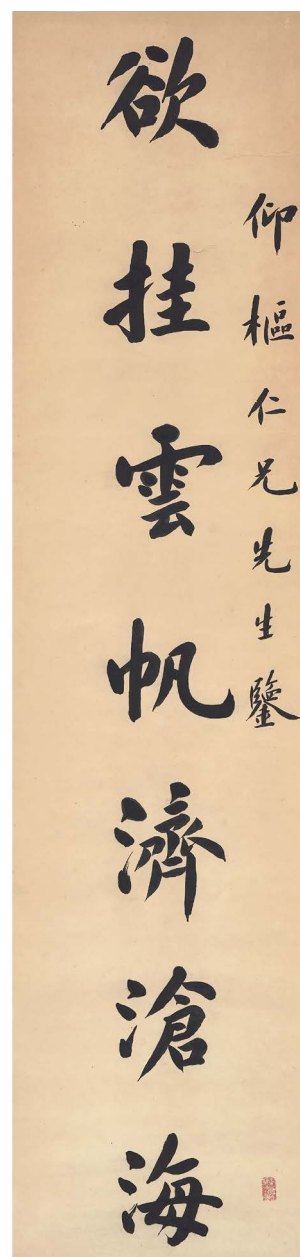 仰樞仁兄先生鑒
欲挂雲帆濟滄海